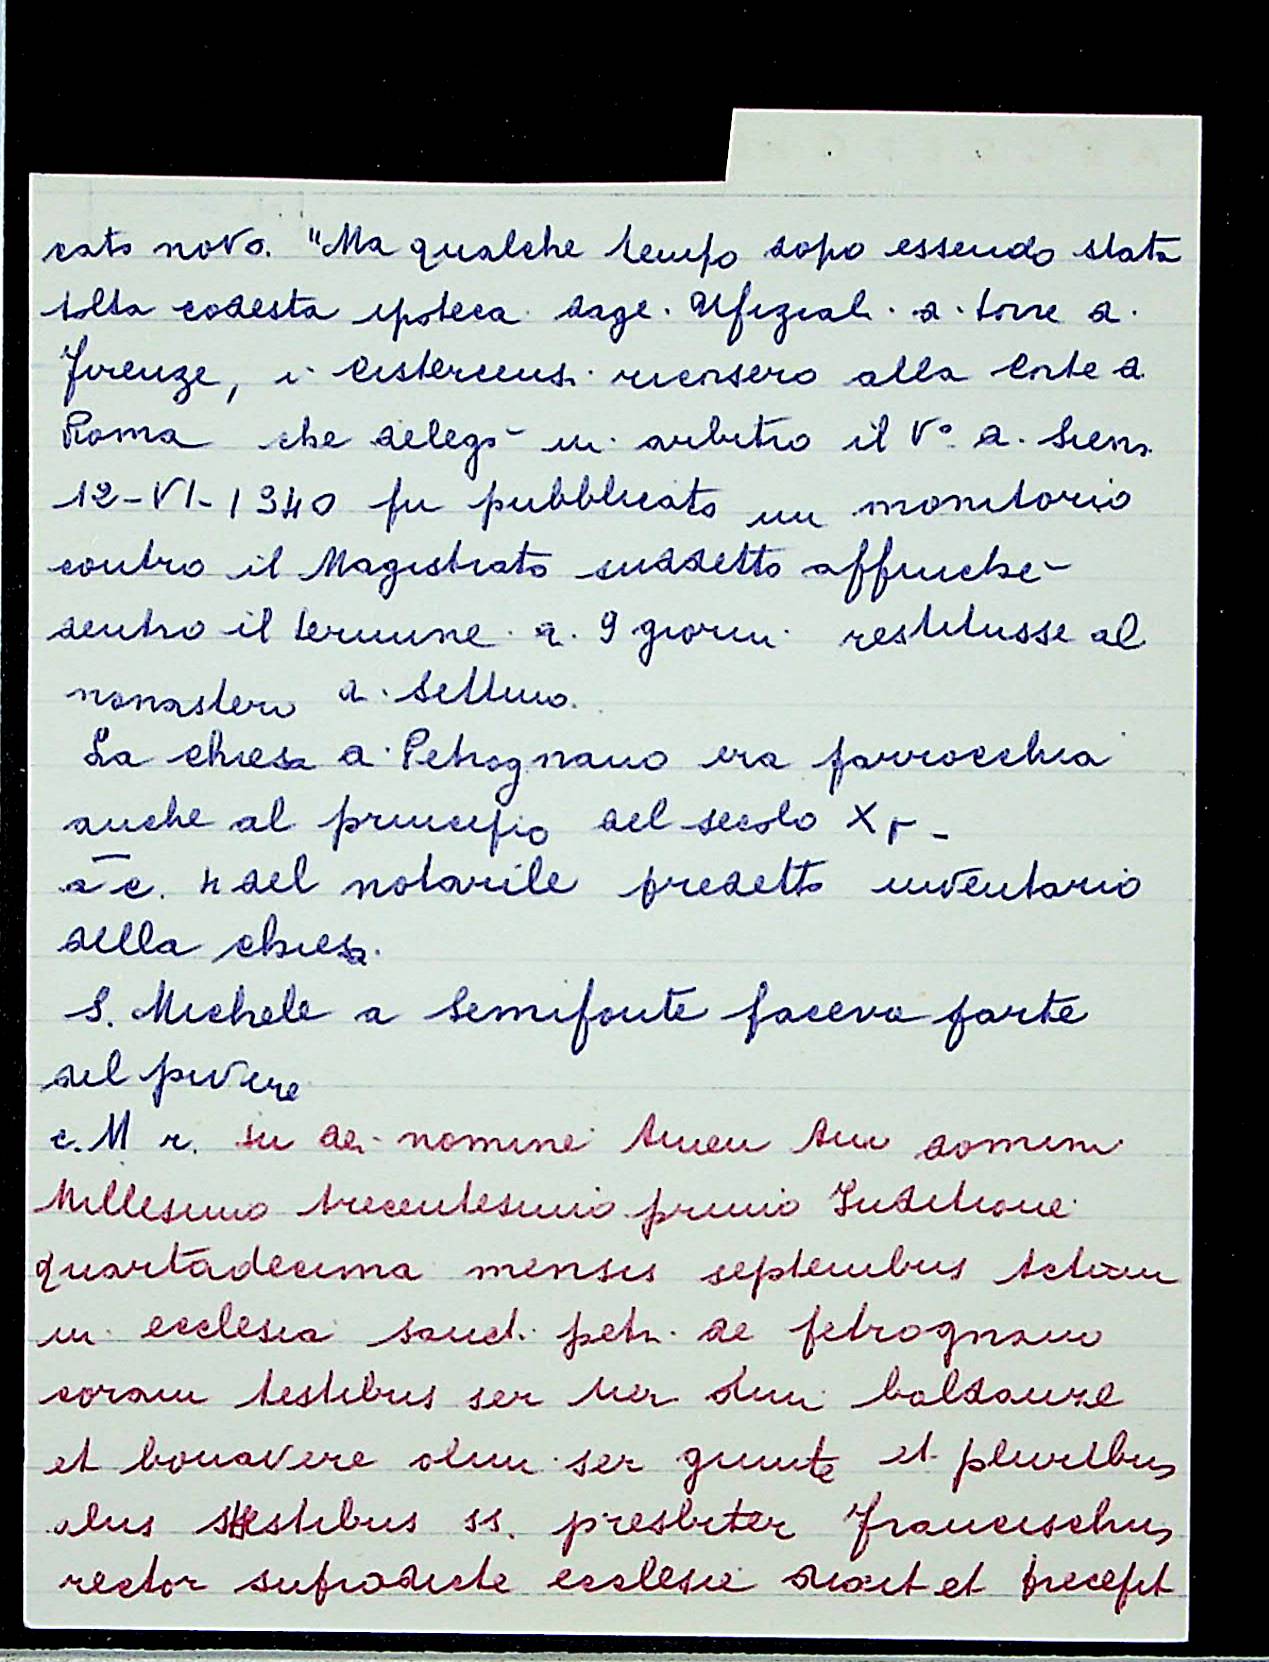 cato novo. "Ma qualche tempo dopo essendo stata
tolta codesta ipoteca dagl. Ufiziali di torre di
Firenze, i Cistercensi ricorsero alla Corte di
Roma che delegò in arbitro il Vº di Siena
12-VI-1340 fu pubblicato un monitorio
contro il Magistrato suddetto affinché
dentro il termine di 9 giorni restituisse al
monastero di Settimo.
La chiesa di Petrognano era parrocchia
anche al principio del secolo XV -
a c. 4 del notarile predetto inventario
della chiesa.
S. Michele a Semifonte faceva parte
del pivere
c. 11 r. In dei nomine Amen Anni domini
Millesimo trecentesimo primo Inditione
quartadecima mensis septembris Actum
in ecclesia sancti petri de petrognano
coram testibus ser olim baldanze
et bonavere olim ser giunte et pluribus
aliis testibus ss. presbiter Franceschus
rector supradicte ecclesie dixit et precepit